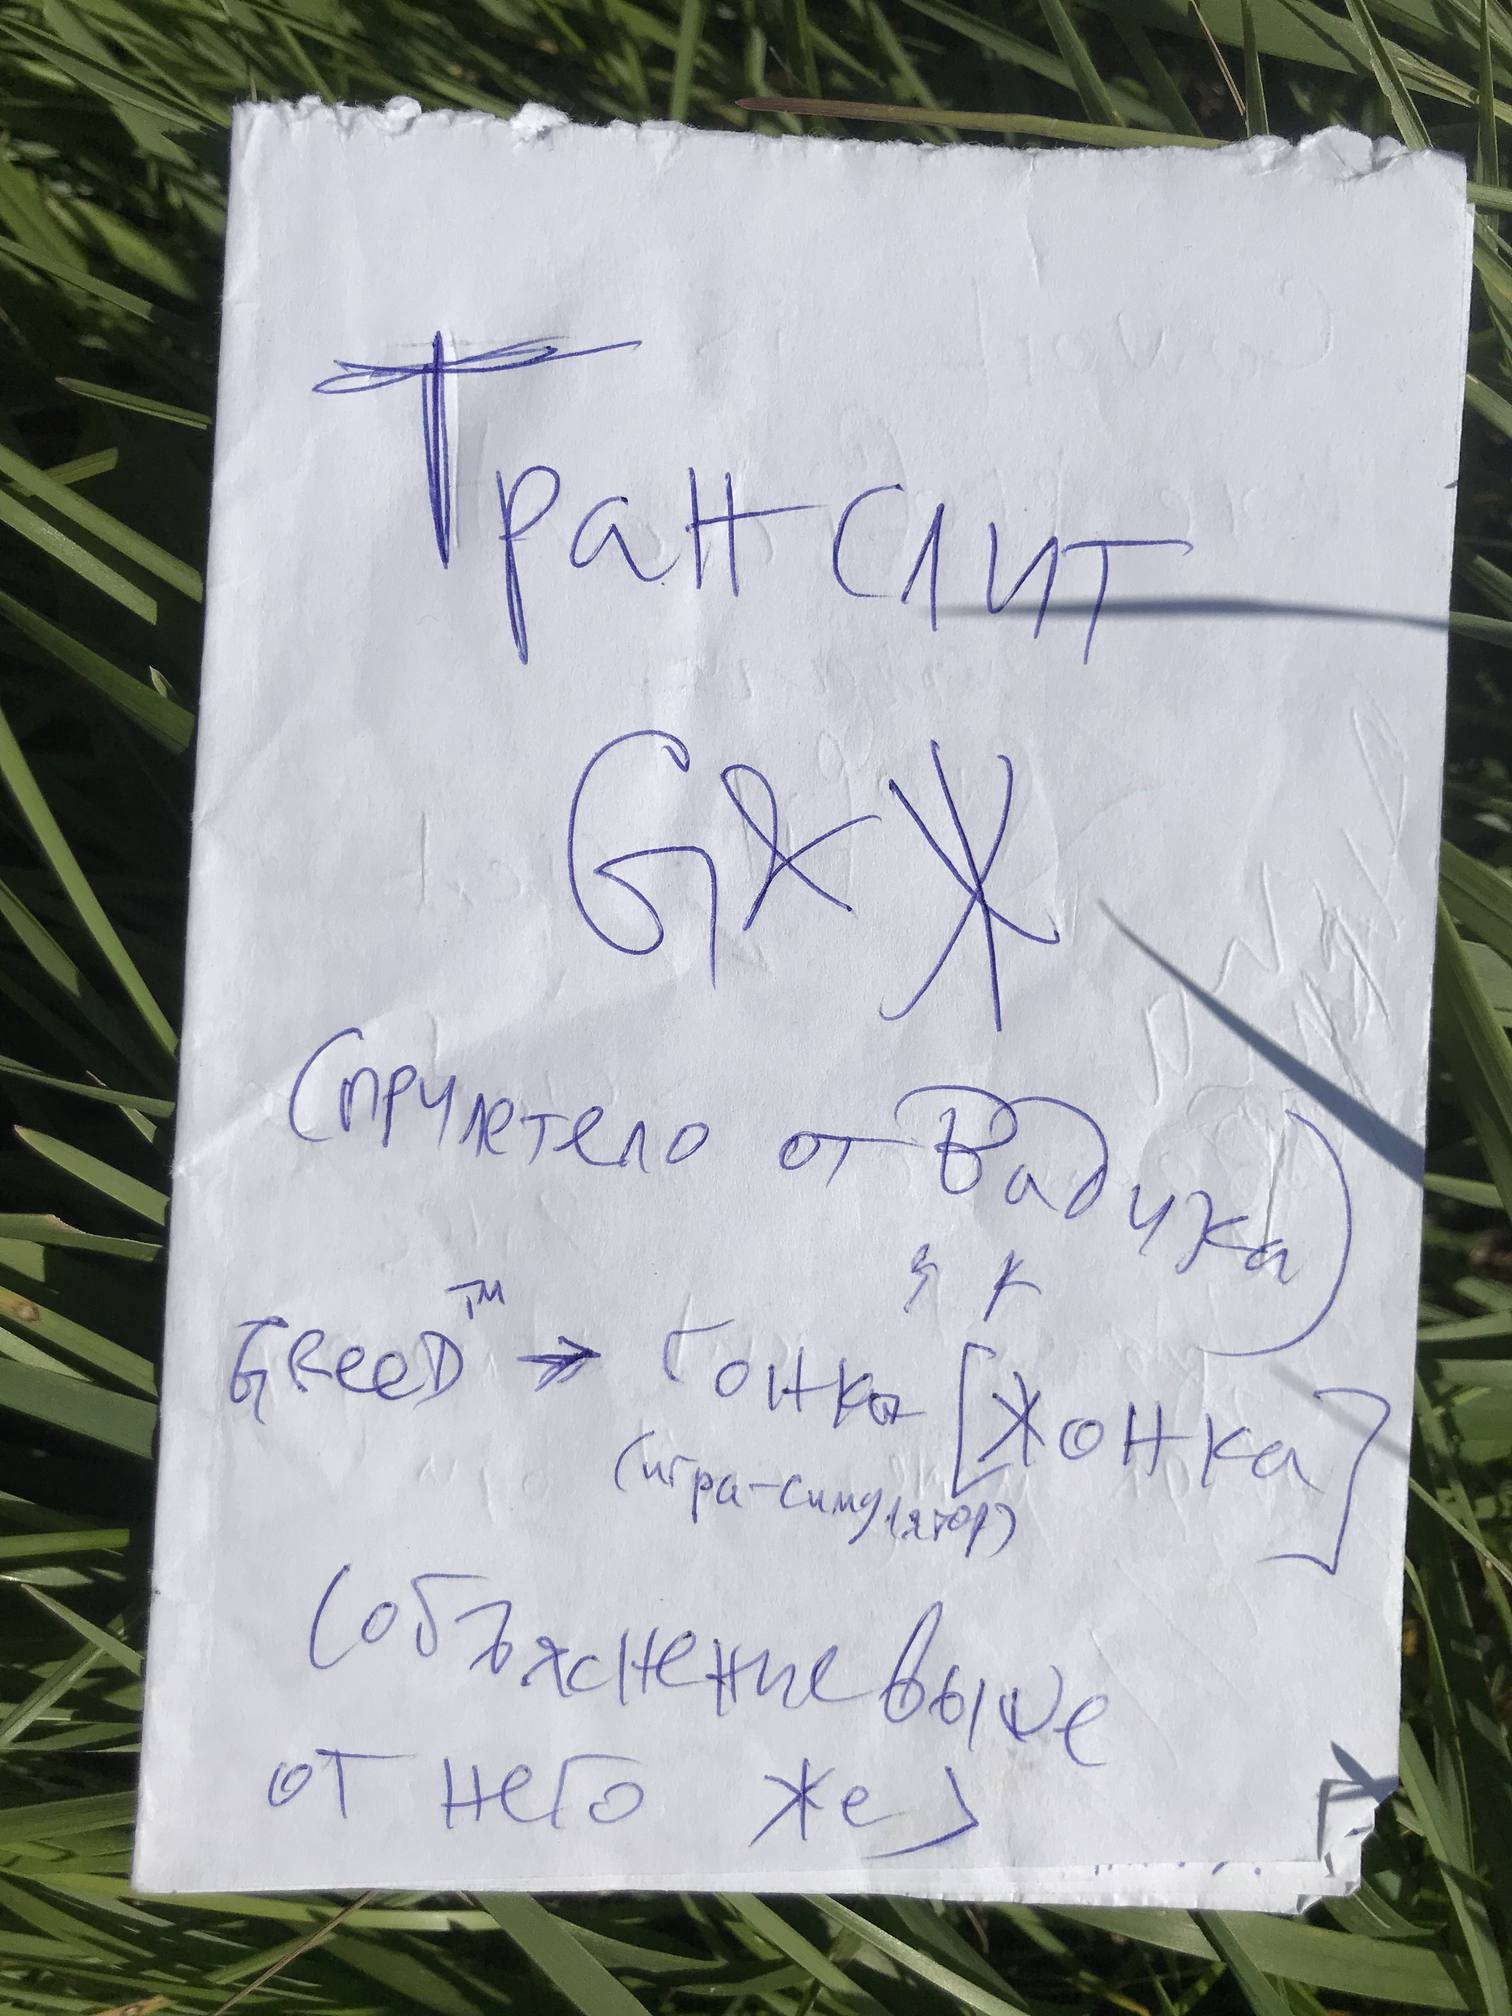 Транслит
G & Ж
(прилетело от Вадика)
GReeD™ → Гонка [Жонка]
(игра-симулятор)
(объяснение выше
от него же)